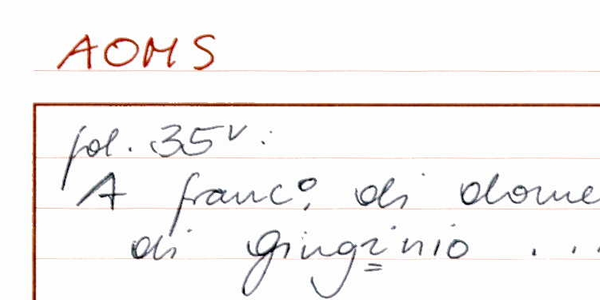 AOMS
fol. 35v:
A franc.º di dome
di giuginio ...